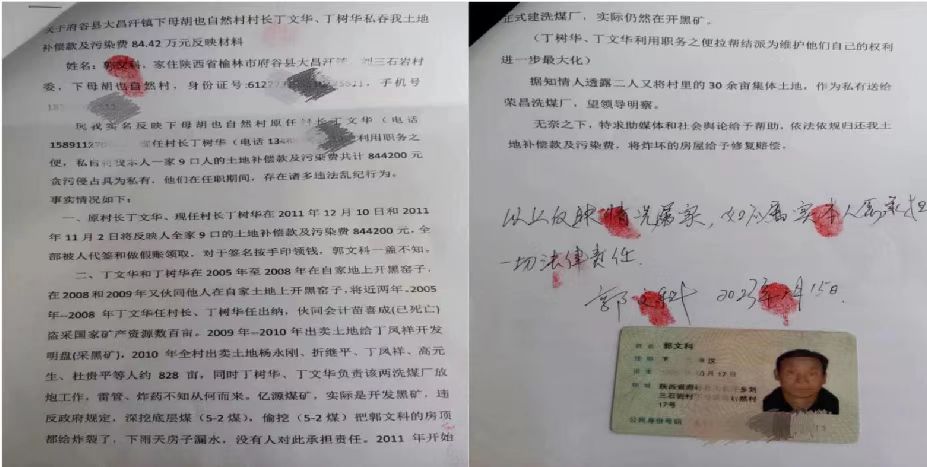 关于府谷县大昌汗镇下母胡也自然村村长丁文华、丁树华私吞我土地
补偿款及污染费 84.42 万元反映材料
姓名：郭文科，家住陕西省榆林市府谷县大昌汗 刘三石岩村
委，下母胡也自然村，身份证号:612 ，手机号
民我实名反映下母胡也自然村原任村长丁文华（电话
1589112 现任村长丁树华（电话 134 利用职务之
便，私自将反映人一家 9 口人的土地补偿款及污染费共计 844200 元
贪污侵占具为私有，他们在任职期间，存在诸多违法乱纪行为。
事实情况如下：
一、原村长丁文华、现任村长丁树华在 2011 年 12 月 10 日和 2011
年 11 月 2 日将反映人全家 9 口的土地补偿款及污染费 844200 元，全
部被人代签和做假账领取，对于签名按手印领钱，郭文科一盖不知。
二、丁文华和丁树华在 2005 年至 2008 年在自家地上开黑窑子，
在 2008 和 2009 年又伙同他人在自家土地上开黑窑子，将近两年。2005
年--2008 年丁文华任村长、丁树华任出纳，伙同会计苗喜成(已死亡)
盗采国家矿产资源数百亩。2009 年--2010 年出卖土地给丁凤祥开发
明盘(采黑矿)，2010 年全村出卖土地杨永刚、折继平、丁凤祥、高元
生、杜贵平等人约 828 亩，同时丁树华、丁文华负责该两洗煤厂放
炮工作，雷管、炸药不知从何而来。亿源煤矿，实际是开发黑矿，违
反政府规定，深挖底层煤（5-2 煤），偷挖（5-2 煤）把郭文科的房顶
都给炸裂了，下雨天房子漏水，没有人对此承担责任。2011 年开始
正式建洗煤厂，实际仍然在开黑矿。
（丁树华、丁文华利用职务之便拉帮结派为维护他们自己的权利
进一步最大化）
据知情人透露二人又将村里的 30 余亩集体土地，作为私有送给
荣昌洗煤厂，望领导明察。
无奈之下，特求助媒体和社会舆论给予帮助，依法依规归还我土
地补偿款及污染费，将炸坏的房屋给予修复赔偿，
以上反映情况属实，如不属实本人愿承担
一切法律责任.
郭文科 2023年 月15日.
姓名 郭文科
汉
月17日
陕西省府谷县
三石岩村 然村
17号
公民身份号码